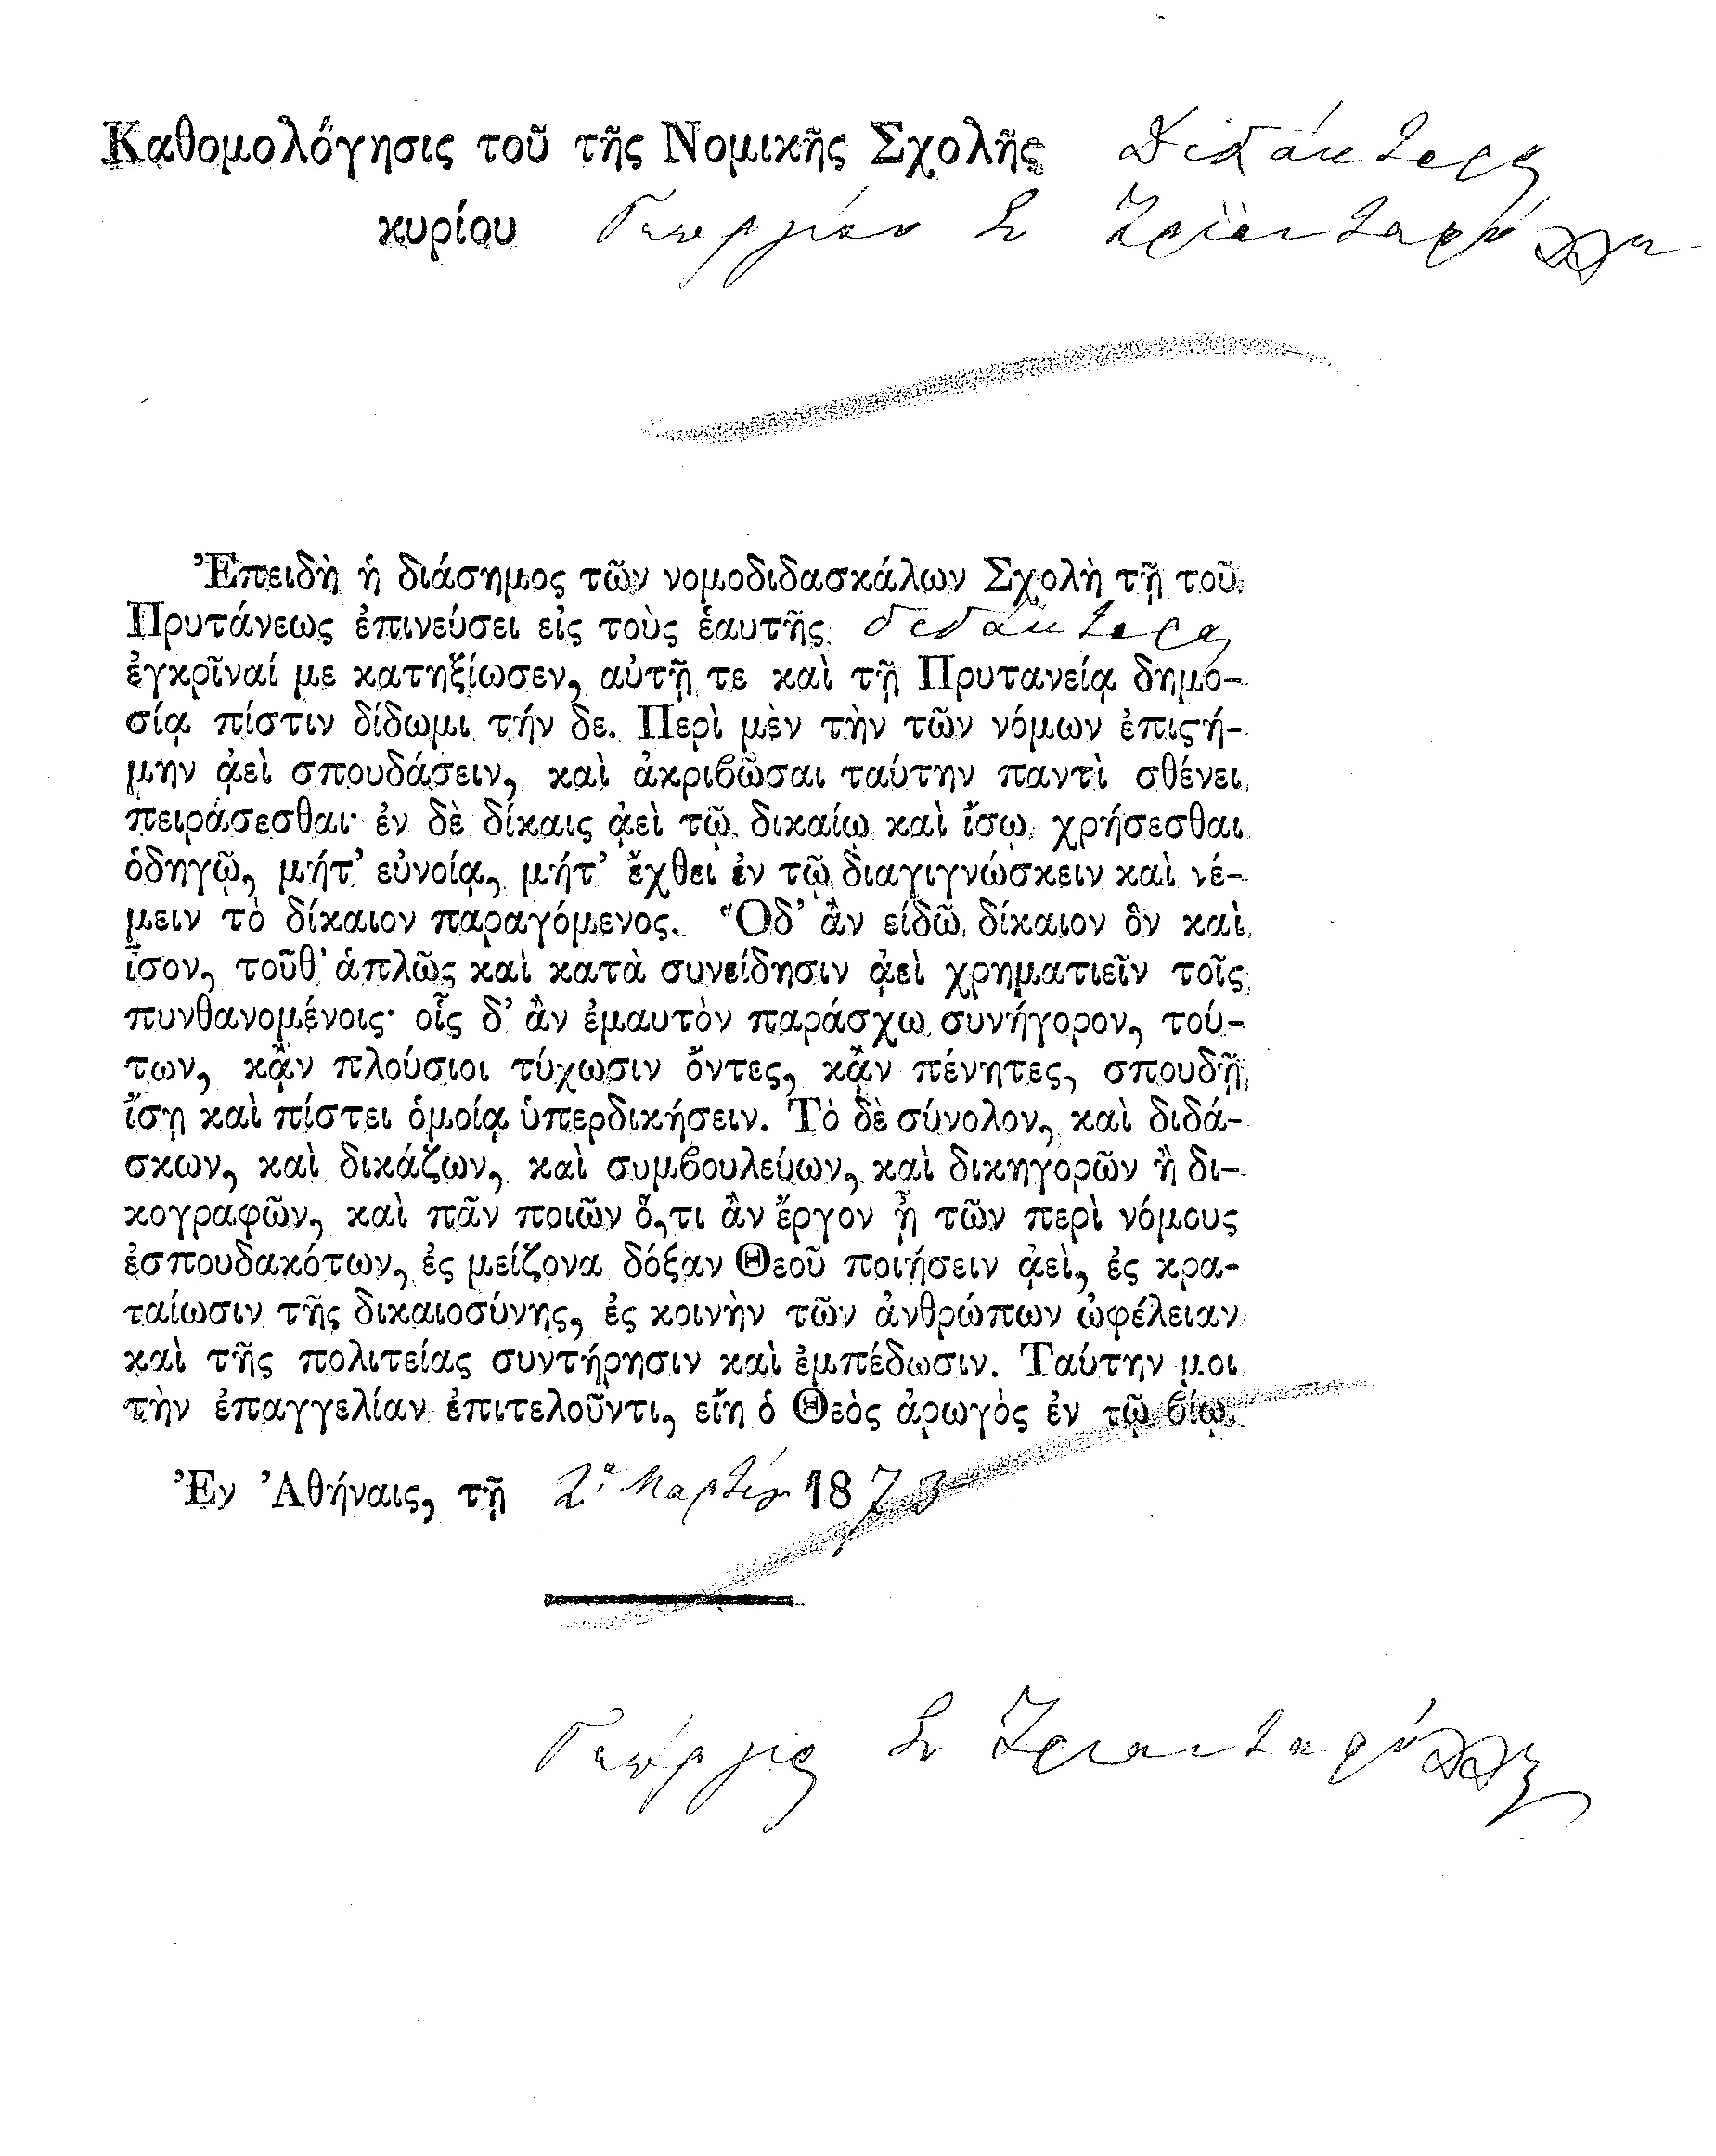 Καθομολόγησις τοῦ τῆς Νομικῆς Σχολῆς Διδάκτορος
κυρίου Γεωργίου Σ Τριανταφύλλη
Ἐπειδὴ ἡ διάσημος τῶν νομοδιδασκάλων Σχολὴ τῇ τοῦ
Πρυτάνεως ἐπινεύσει εἰς τοὺς ἑαυτῆς διδάκτορας
ἐγκρῖναί με κατηξίωσεν, αὐτῇ τε καὶ τῇ Πρυτανείᾳ δημο-
σίᾳ πίστιν δίδωμι τήν δε. Περὶ μὲν τὴν τῶν νόμων ἐπιϛή-
μην ᾀεὶ σπουδάσειν, καὶ ἀκριβῶσαι ταύτην παντὶ σθένει
πειράσεσθαι· ἐν δὲ δίκαις ᾀεὶ τῷ δικαίῳ καὶ ἴσῳ χρήσεσθαι
ὁδηγῷ, μήτ' εὐνοίᾳ, μήτ' ἔχθει ἐν τῷ διαγιγνώσκειν καὶ νέ-
μειν τὸ δίκαιον παραγόμενος. Ὃδ' ἂν εἰδῶ δίκαιον ὂν καὶ
ἶσον, τοῦθ' ἁπλῶς καὶ κατὰ συνείδησιν ᾀεὶ χρηματιεῖν τοῖς
πυνθανομένοις· οἷς δ' ἂν ἐμαυτὸν παράσχω συνήγορον, τού-
των, κᾂν πλούσιοι τύχωσιν ὄντες, κᾂν πένητες, σπουδῇ
ἴσῃ καὶ πίστει ὁμοίᾳ ὑπερδικήσειν. Τὸ δὲ σύνολον, καὶ διδά-
σκων, καὶ δικάζων, καὶ συμβουλεύων, καὶ δικηγορῶν ἢ δι-
κογραφῶν, καὶ πᾶν ποιῶν ὅ,τι ἂν ἔργον ᾖ τῶν περὶ νόμους
ἐσπουδακότων, ἐς μείζονα δόξαν Θεοῦ ποιήσειν ᾀεὶ, ἐς κρα-
ταίωσιν τῆς δικαιοσύνης, ἐς κοινὴν τῶν ἀνθρώπων ὠφέλειαν
καὶ τῆς πολιτείας συντήρησιν καὶ ἐμπέδωσιν. Ταύτην μοι
τὴν ἐπαγγελίαν ἐπιτελοῦντι, εἴη ὁ Θεὸς ἀρωγὸς ἐν τῷ βίῳ.
Ἐν Ἀθήναις, τῇ 2ᾳ Μαρτίου 1873
Γεώργιος Σ Τριανταφύλλης